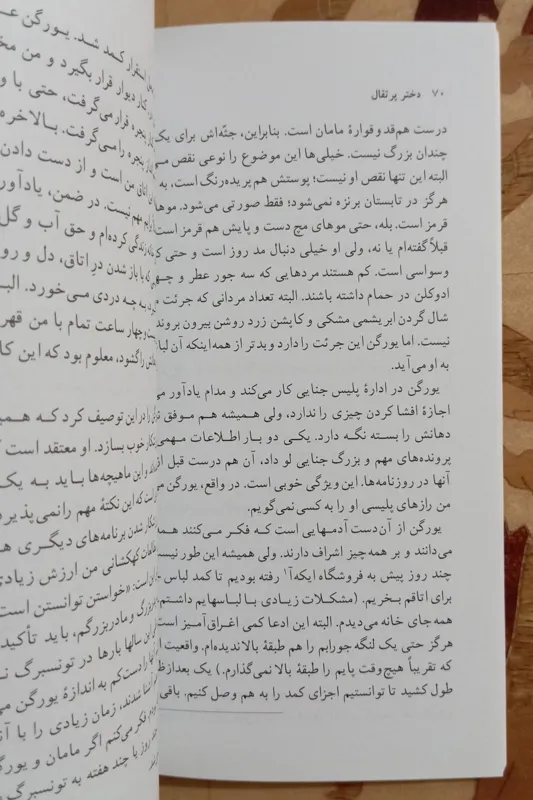 ۷۰ دختر پرتقال
درست هم‌قد و قوارهٔ مامان است. بنابراین، جثّه‌اش برای یک
چندان بزرگ نیست. خیلی‌ها این موضوع را نوعی نقص
البته این تنها نقص او نیست؛ پوستش هم پریده‌رنگ است، به
هرگز در تابستان برنزه نمی‌شود؛ فقط صورتی می‌شود. موها
قرمز است. بله، حتی موهای مچ دست و پایش هم قرمز است
قبلاً گفته‌ام یا نه، ولی او خیلی دنبال مد روز است و حتی
وسواسی است. کم هستند مردهایی که سه جور عطر و
ادوکلن در حمام داشته باشند. البته تعداد مردانی که جرئت
شال گردن ابریشمی مشکی و کاپشن زرد روشن بیرون بروند
نیست. اما یورگن این جرئت را دارد و بدتر از همه اینکه آن
به او می‌آید.
یورگن در ادارهٔ پلیس جنایی کار می‌کند و مدام یادآور
اجازهٔ افشا کردن چیزی را ندارد، ولی همیشه هم موفق
دهانش را بسته نگه دارد. یکی دو بار اطلاعات مهمی
پرونده‌های مهم و بزرگ جنایی لو داد، آن هم درست قبل از
آنها در روزنامه‌ها. این ویژگی خوبی است. در واقع، یورگن
من رازهای پلیسی او را به کسی نمی‌گویم.
یورگن از آن‌دست آدمهایی است که فکر می‌کنند همه
می‌دانند و بر همه‌چیز اشراف دارند. ولی همیشه این طور نیست
چند روز پیش به فروشگاه ایکه‌آ۱ رفته بودیم تا کمد لباس
برای اتاقم بخریم. (مشکلات زیادی با لباسهایم داشتم،
همه‌جای خانه می‌دیدم. البته این ادعا کمی اغراق‌آمیز است
هرگز حتی یک لنگه جورابم را هم طبقهٔ بالا ندیده‌ام. واقعیت
که تقریباً هیچ‌وقت پایم را طبقهٔ بالا نمی‌گذارم.) یک بعدازظ
طول کشید تا توانستیم اجزای کمد را به هم وصل کنیم. باقی
استقرار کمد شد. یورگن
کنار دیوار قرار بگیرد و من
پنجره قرار می‌گرفت، حتی با
پنجره را می‌گرفت. بالاخره
اتاق من است و از دست دادن
مهم نیست. در ضمن، یادآور
زندگی کرده‌ام و حق آب و گل
که با باز شدن در اتاق، دل و
چه دردی می‌خورد.
وچهار ساعت تمام با من قهر
را گشود، معلوم بود که این
را در این توصیف کرد که
خوب بسازد. او معتقد است
و این ماهیچه‌ها باید به یک
است که این نکتهٔ مهم را نمی‌پذیرد
شدن برنامه‌های دیگری
کهکشانی من ارزش زیادی
است: «خواستن توانستن است
و مادربزرگم، باید تأکید
این سالها بارها در تونسبرگ
دست‌کم به اندازهٔ یورگن
شدند، زمان زیادی را با
فکر می‌کنم اگر مامان و
روز یا چند هفته به تونسبرگ